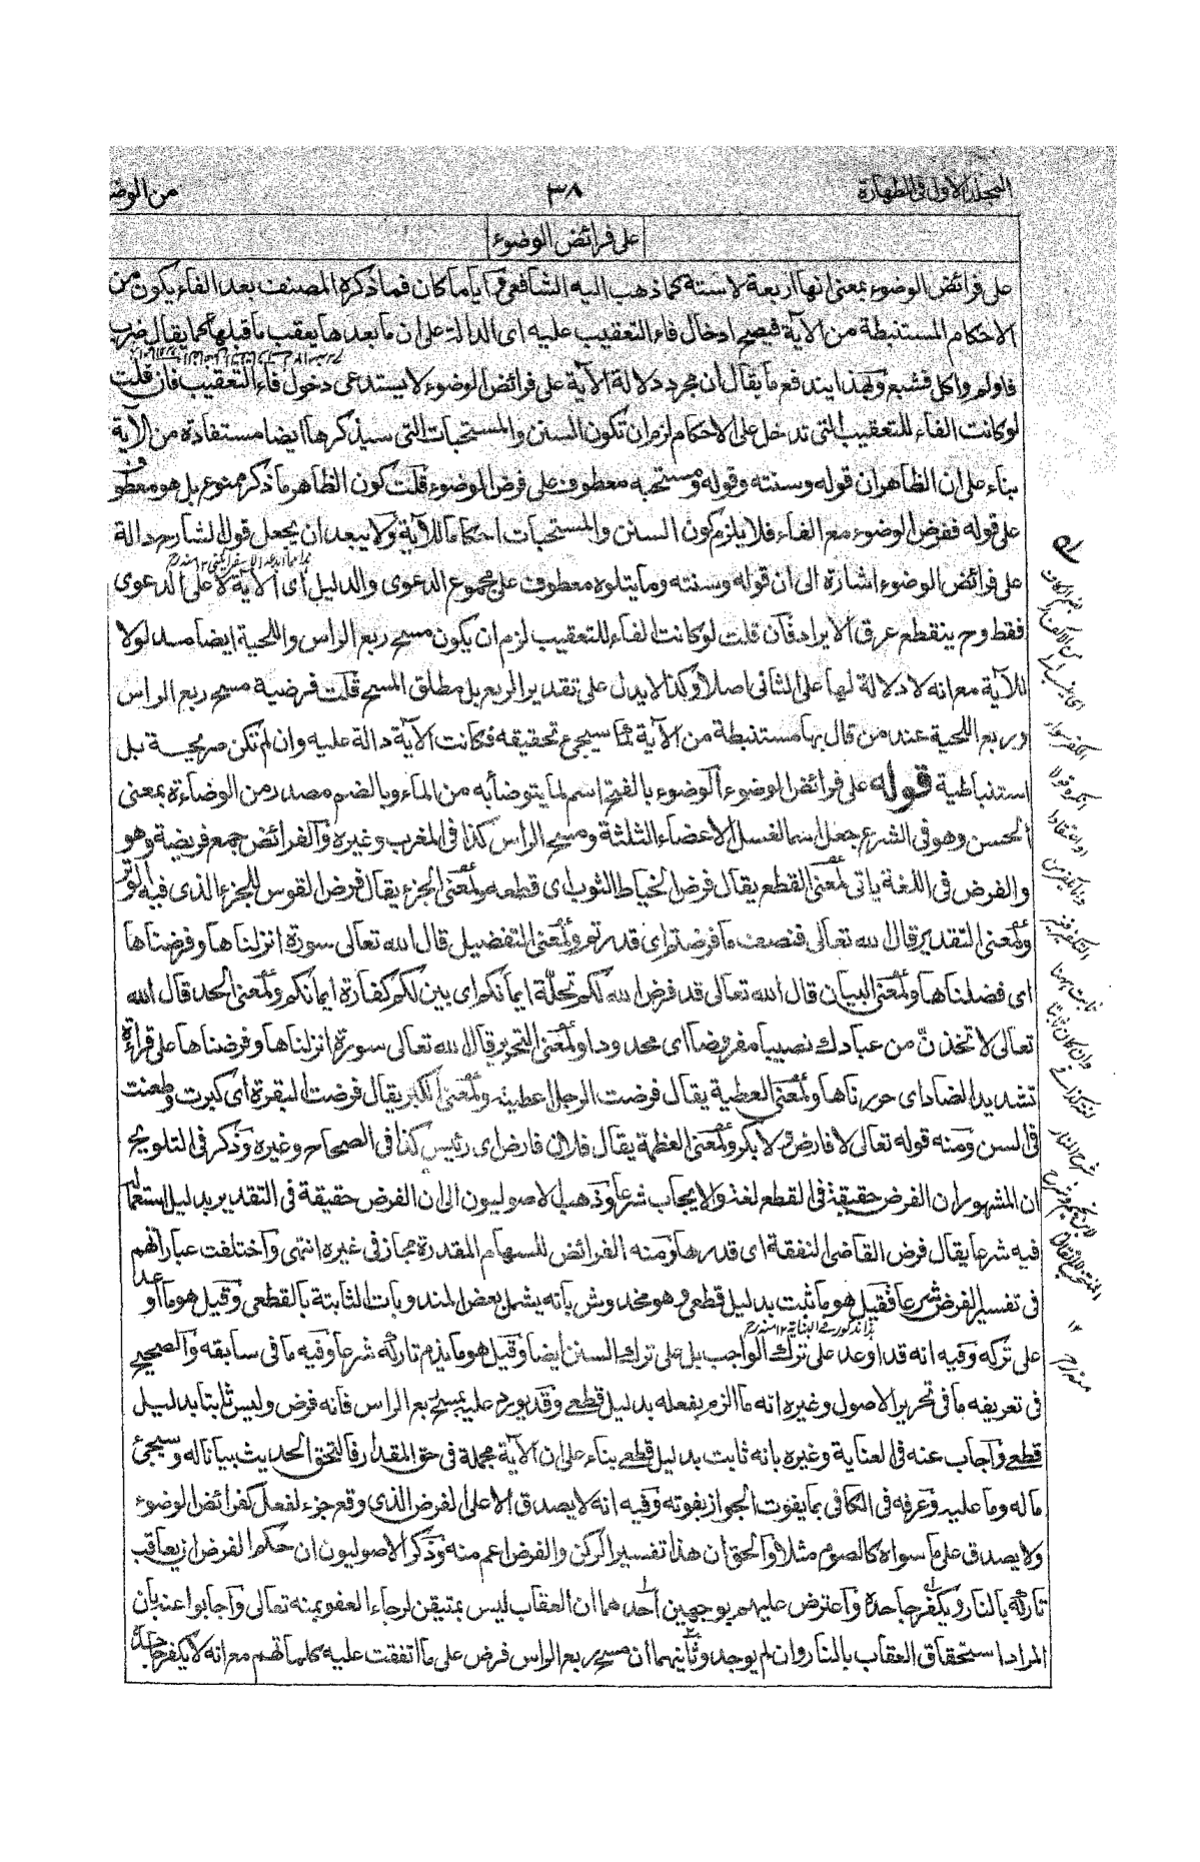 المجلد الاول فى الطهارة
٣٨
من الوض
على فرائض الوضوء
على فرائض الوضوء بمعنى انها اربعة لا ستة كما ذهب اليه الشافعى و اياما كان فما ذكره المصنف بعد الفاء يكون من
الاحكام المستنبطة من الآية فيصح ادخال فاء التعقيب عليه اى الدالة على ان ما بعدها يعقب ما قبلها كما يقال ضرب
فاولم واكل فشبع وبهذا يندفع ما يقال ان مجرد دلالة الآية على فرائض الوضوء لا يستدعى دخول فاء التعقيب فان قلت
لو كانت الفاء للتعقيب التى تدخل على الاحكام لزم ان تكون السنن والمستحبات التى سيذكرها ايضا مستفادة من الآية
بناء على ان الظاهر ان قوله وسنته وقوله ومستحبه معطوف على فرض الوضوء قلت كون الظاهر ما ذكر ممنوع بل هو معطوف
على قوله ففرض الوضوء مع الفاء فلا يلزم كون السنن والمستحبات احكاما للآية ولا يبعد ان يجعل قول الشارح دالة
على فرائض الوضوء اشارة الى ان قوله وسنته وما يتلوه معطوف على مجموع الدعوى والدليل اى الآية لا على الدعوى
فقط وح ينقطع عرق الايراد فان قلت لو كانت الفاء للتعقيب لزم ان يكون مسح ربع الراس واللحية ايضا مدلولا
للآية مع انه لا دلالة لها على الثانى اصلا وكذا لا يدل على تقدير الربع بل مطلق المسح قلت فرضية مسح ربع الراس
وربع اللحية عند من قال بها مستنبطة من الآية كما سيجىء تحقيقه فكانت الآية دالة عليه وان لم تكن صريحة بل
استنباطية قوله على فرائض الوضوء الوضوء بالفتح اسم لما يتوضأ به من الماء وبالضم مصدر من الوضاءة بمعنى
الحسن وهو فى الشرع جعل اسما لغسل الاعضاء الثلثة ومسح الراس كذا فى المغرب وغيره والفرائض جمع فريضة وهو
والفرض فى اللغة ياتى لمعنى القطع يقال فرض الخياط الثوب اى قطعه ولمعنى الجزء يقال فرض القوس للجزء الذى فيه الوتر
ولمعنى التقدير قال الله تعالى فنصف ما فرضتم اى قدرتم ولمعنى التفضيل قال الله تعالى سورة انزلناها وفرضناها
اى فضلناها ولمعنى البيان قال الله تعالى قد فرض الله لكم تحلة ايمانكم اى بين لكم كفارة ايمانكم ولمعنى الحد قال الله
تعالى لاتخذن من عبادك نصيبا مفروضا اى محدودا ولمعنى التحرير قال الله تعالى سورة انزلناها وفرضناها على قراءة
تشديد الضاد اى حررناها ولمعنى العطية يقال فرضت الرجل اعطيته ولمعنى الكبر يقال فرضت البقرة اى كبرت وطعنت
فى السن ومنه قوله تعالى لا فارض ولا بكر ولمعنى العظمة يقال فلان فارض اى رئيس كذا فى الصحاح وغيره وذكر فى التلويح
ان المشهور ان الفرض حقيقة فى القطع لغة والايجاب شرعا وذهب الاصوليون الى ان الفرض حقيقة فى التقدير بدليل استعماله
فيه شرعا يقال فرض القاضى النفقة اى قدرها ومنه الفرائض للسهام المقدرة مجاز فى غيره انتهى واختلفت عباراتهم
فى تفسير الفرض شرعا فقيل هو ما ثبت بدليل قطعى وهو مخدوش بانه يشمل بعض المندوبات الثابتة بالقطعى وقيل هو ما اوعد
على تركه وفيه انه قد اوعد على ترك الواجب بل على ترك السنن ايضا وقيل هو ما يذم تاركه شرعا وفيه ما فى سابقه والصحيح
فى تعريفه ما فى تحرير الاصول وغيره انه ما الزم بفعله بدليل قطعى وقد يورد عليه بمسح ربع الراس فانه فرض وليس ثابتا بدليل
قطعى واجاب عنه فى العناية وغيره بانه ثابت بدليل قطعى بناء على ان الآية مجملة فى حق المقدار فالتحق الحديث بيانا له وسيجىء
ما له وما عليه وعرفه فى الكافى بما يفوت الجواز بفوته وفيه انه لا يصدق الا على الفرض الذى وقع جزء لفعل كفرائض الوضوء
ولا يصدق على ما سواه كالصوم مثلا والحق ان هذا تفسير الركن والفرض اعم منه وذكر الاصوليون ان حكم الفرض ان يعاقب
تاركه بالنار ويكفر جاحده واعترض عليهم بوجهين احدهما ان العقاب ليس بمتيقن لرجاء العفو بمنه تعالى واجابوا عنه بان
المراد استحقاق العقاب بالنار وان لم يوجد وثانيهما ان مسح ربع الراس فرض على ما اتفقت عليه كلماتهم مع انه لا يكفر جاحده